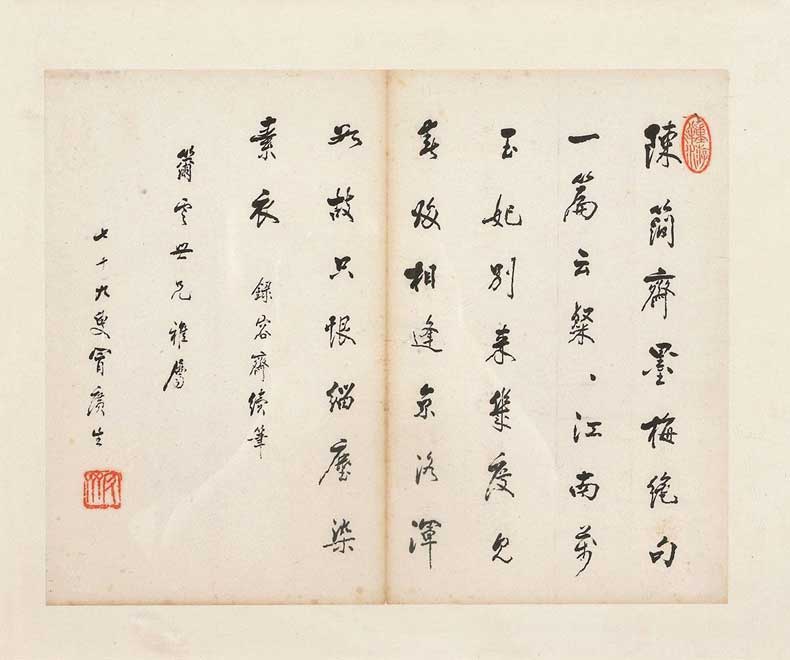 陳簡齋墨梅絕句
一篇云粲丶江南萬
玉妃別來幾度見
春歸相逢京洛渾
如故只恨緇塵染
素衣 錄容齋續筆
籋雲世兄雅屬
七十九叟冒廣生